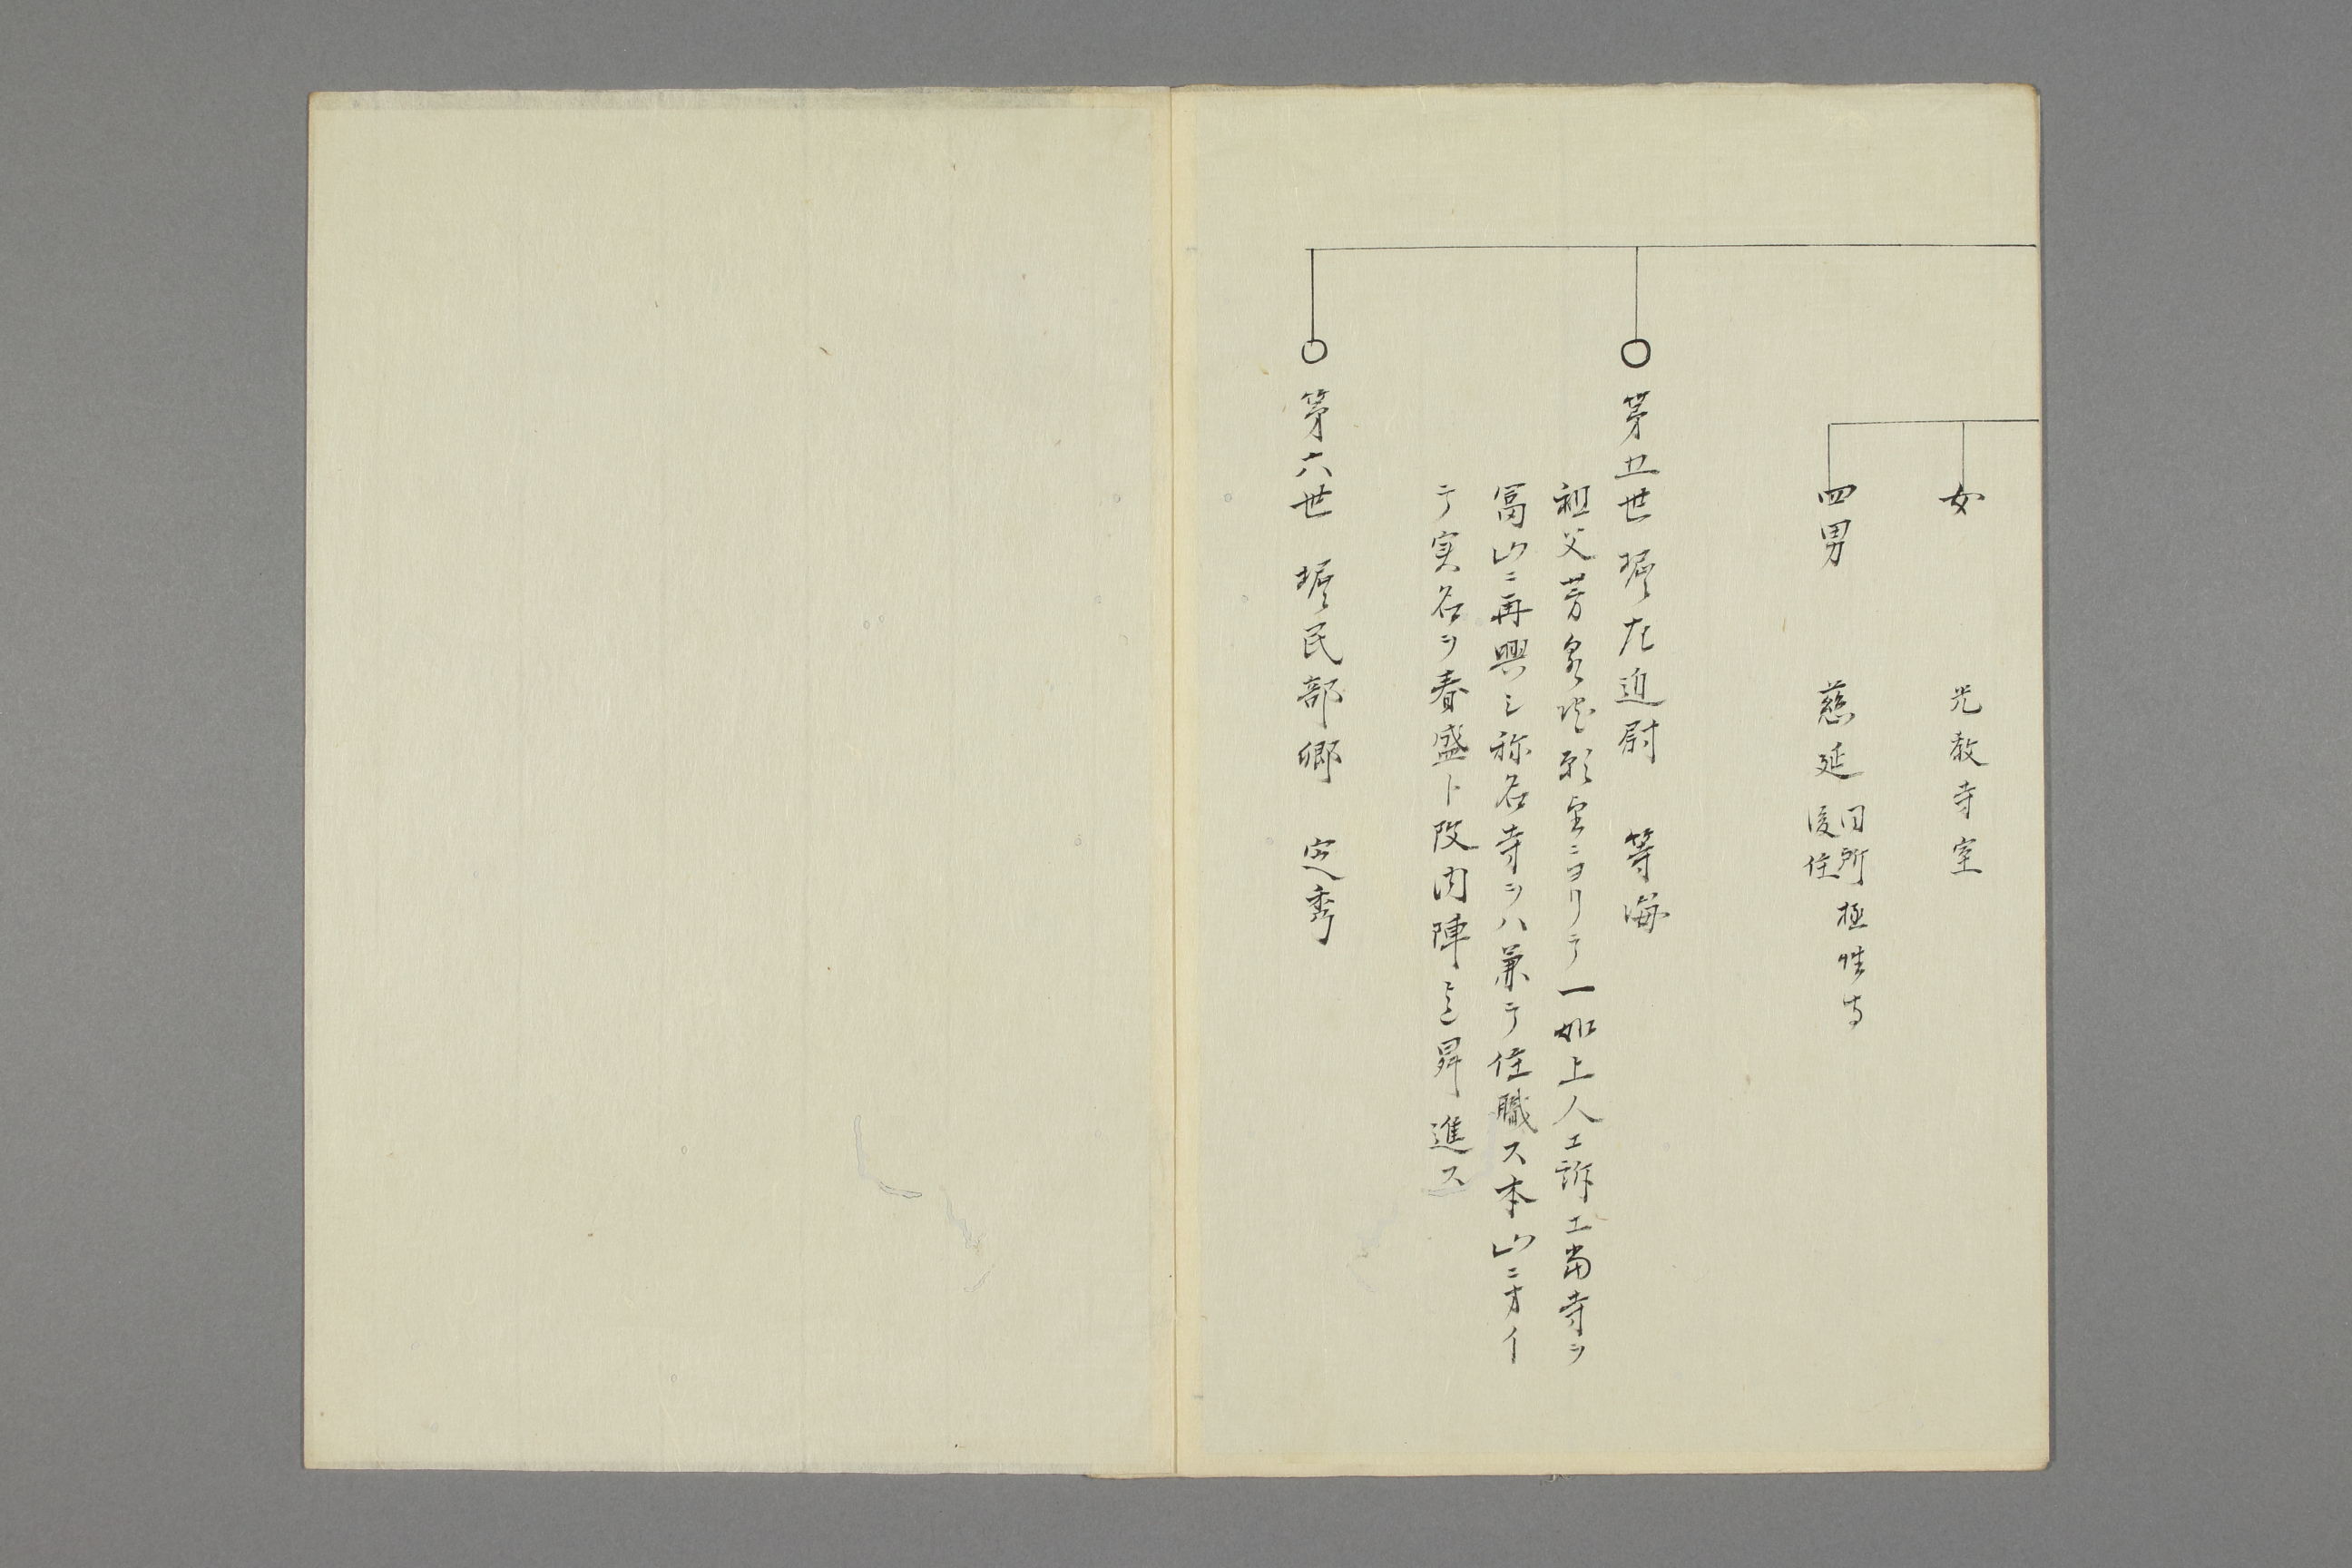 女　光教寺室
四男　慈延　同所極性寺
後住
第五世　堀左近尉　等海
祖父芳泉坊願望ニヨリテ一如上人エ訴エ当寺ヲ
冨山ニ再興シ称名寺ヲハ兼テ住職ス本山ニオイ
テ実名ヲ春盛ト改内陣迄昇進ス
第六世　堀民部卿　定秀